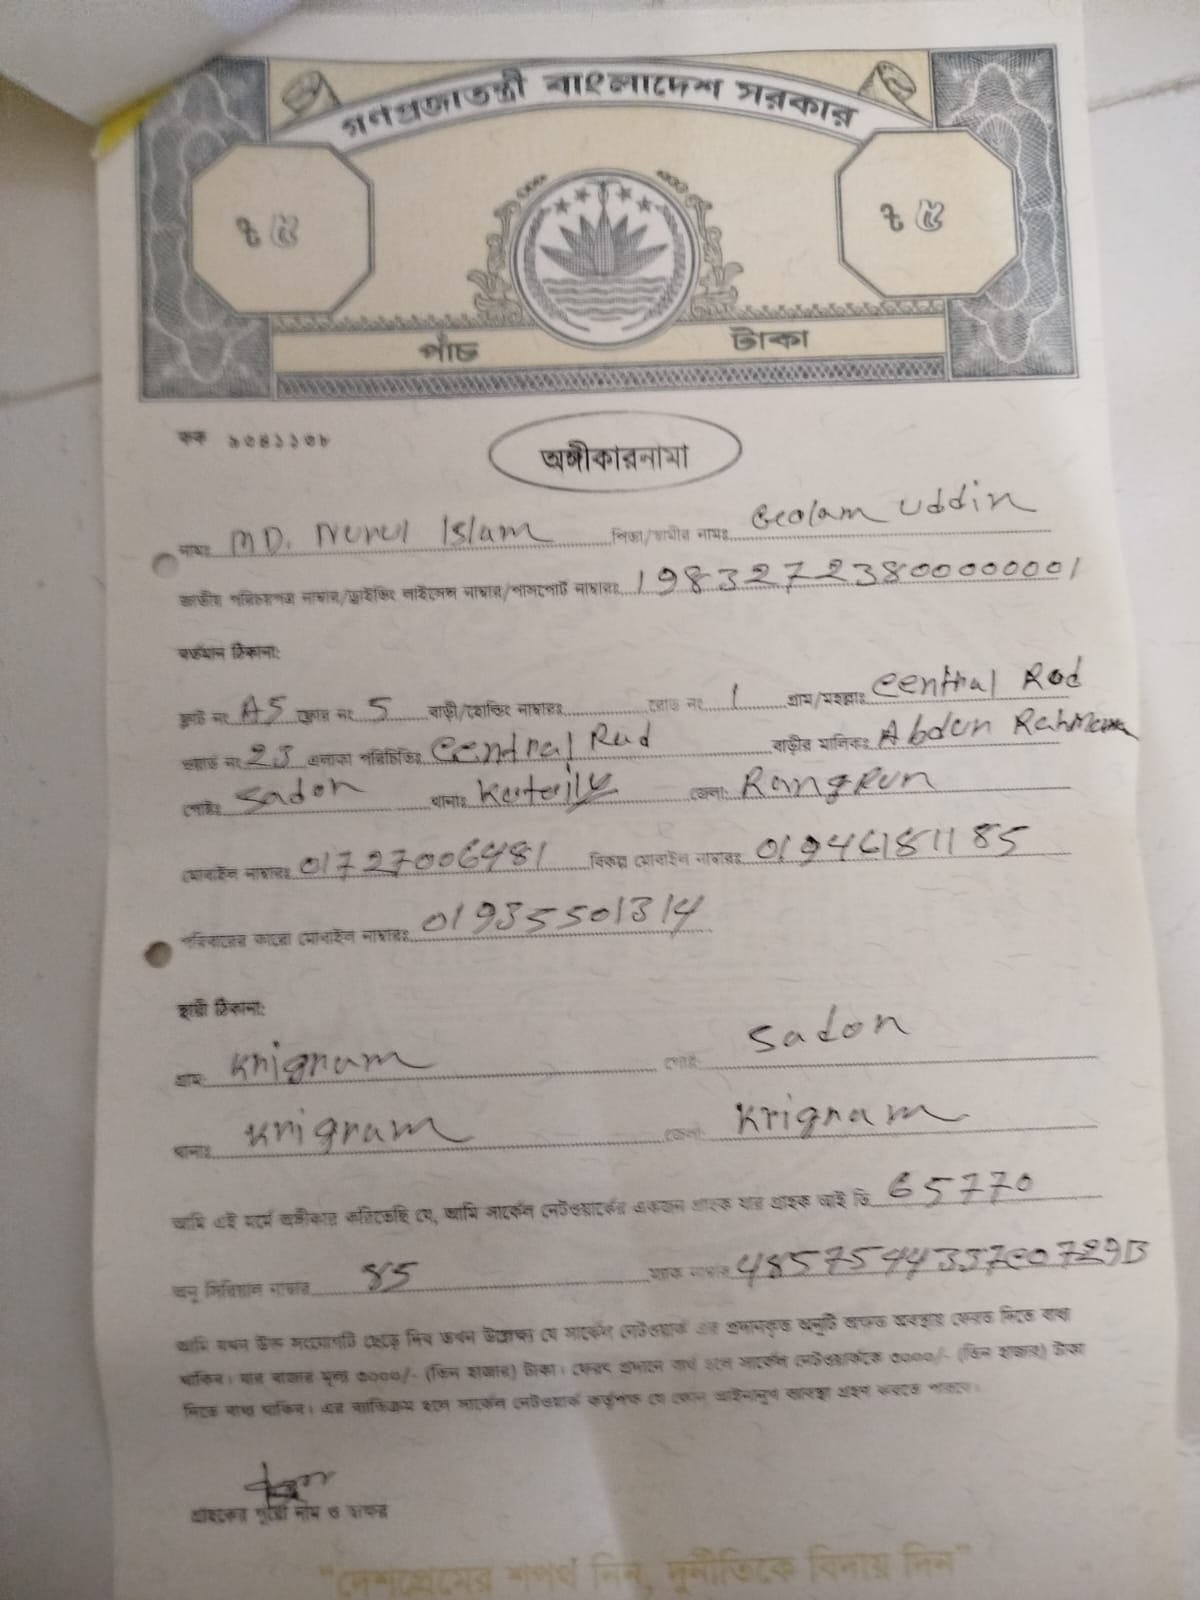 গণপ্রজাতন্ত্রী বাংলাদেশ সরকার
৳ ৫ ৳ ৫
পাঁচ টাকা
কক ১৩৪১১৩৮
অঙ্গীকারনামা
নামঃ MD. Nurul Islam পিতা/স্বামীর নামঃ Geolam Uddin
জাতীয় পরিচয়পত্র নাম্বার/ড্রাইভিং লাইসেন্স নাম্বার/পাসপোর্ট নাম্বারঃ 19832722380000001
বর্তমান ঠিকানা:
ফ্লাট নং A5 ফ্লোর নং 5 বাড়ী/হোল্ডিং নাম্বারঃ রোড নং 1 গ্রাম/মহল্লাঃ Central Rod
ওয়ার্ড নং 23 এলাকা পরিচিতিঃ Central Rud বাড়ীর মালিকঃ Abdur Rahman
পোষ্টঃ Sador থানাঃ জেলা:
মোবাইল নাম্বারঃ 01727006481 বিকল্প মোবাইল নাম্বারঃ 01946181185
পরিবারের কারো মোবাইল নাম্বারঃ 01935501314
স্থায়ী ঠিকানা:
গ্রাম: Krigram পোষ্ট: Sador
থানাঃ Krigram জেলা: Krigram
আমি এই মর্মে অঙ্গীকার করিতেছি যে, আমি সার্কেল নেটওয়ার্কের একজন গ্রাহক যার গ্রাহক আই ডি 65770
অনু সিরিয়াল নাম্বার 85 ম্যাক নাম্বার
আমি যখন উক্ত সংযোগটি ছেড়ে দিব তখন উল্লেখ্য যে সার্কেল নেটওয়ার্ক এর প্রদানকৃত অনুটি অক্ষত অবস্থায় ফেরত দিতে বাধ্য
থাকিব। যার বাজার মূল্য ৩০০০/- (তিন হাজার) টাকা। ফেরৎ প্রদানে ব্যর্থ হলে সার্কেল নেটওয়ার্ককে ৩০০০/- (তিন হাজার) টাকা
দিতে বাধ্য থাকিব। এর ব্যতিক্রম হলে সার্কেল নেটওয়ার্ক কর্তৃপক্ষ যে কোন আইনানুগ ব্যবস্থা গ্রহণ করতে পারবে।
গ্রাহকের পুরো নাম ও স্বাক্ষর
"দেশপ্রেমের শপথ নিন, দুর্নীতিকে বিদায় দিন"